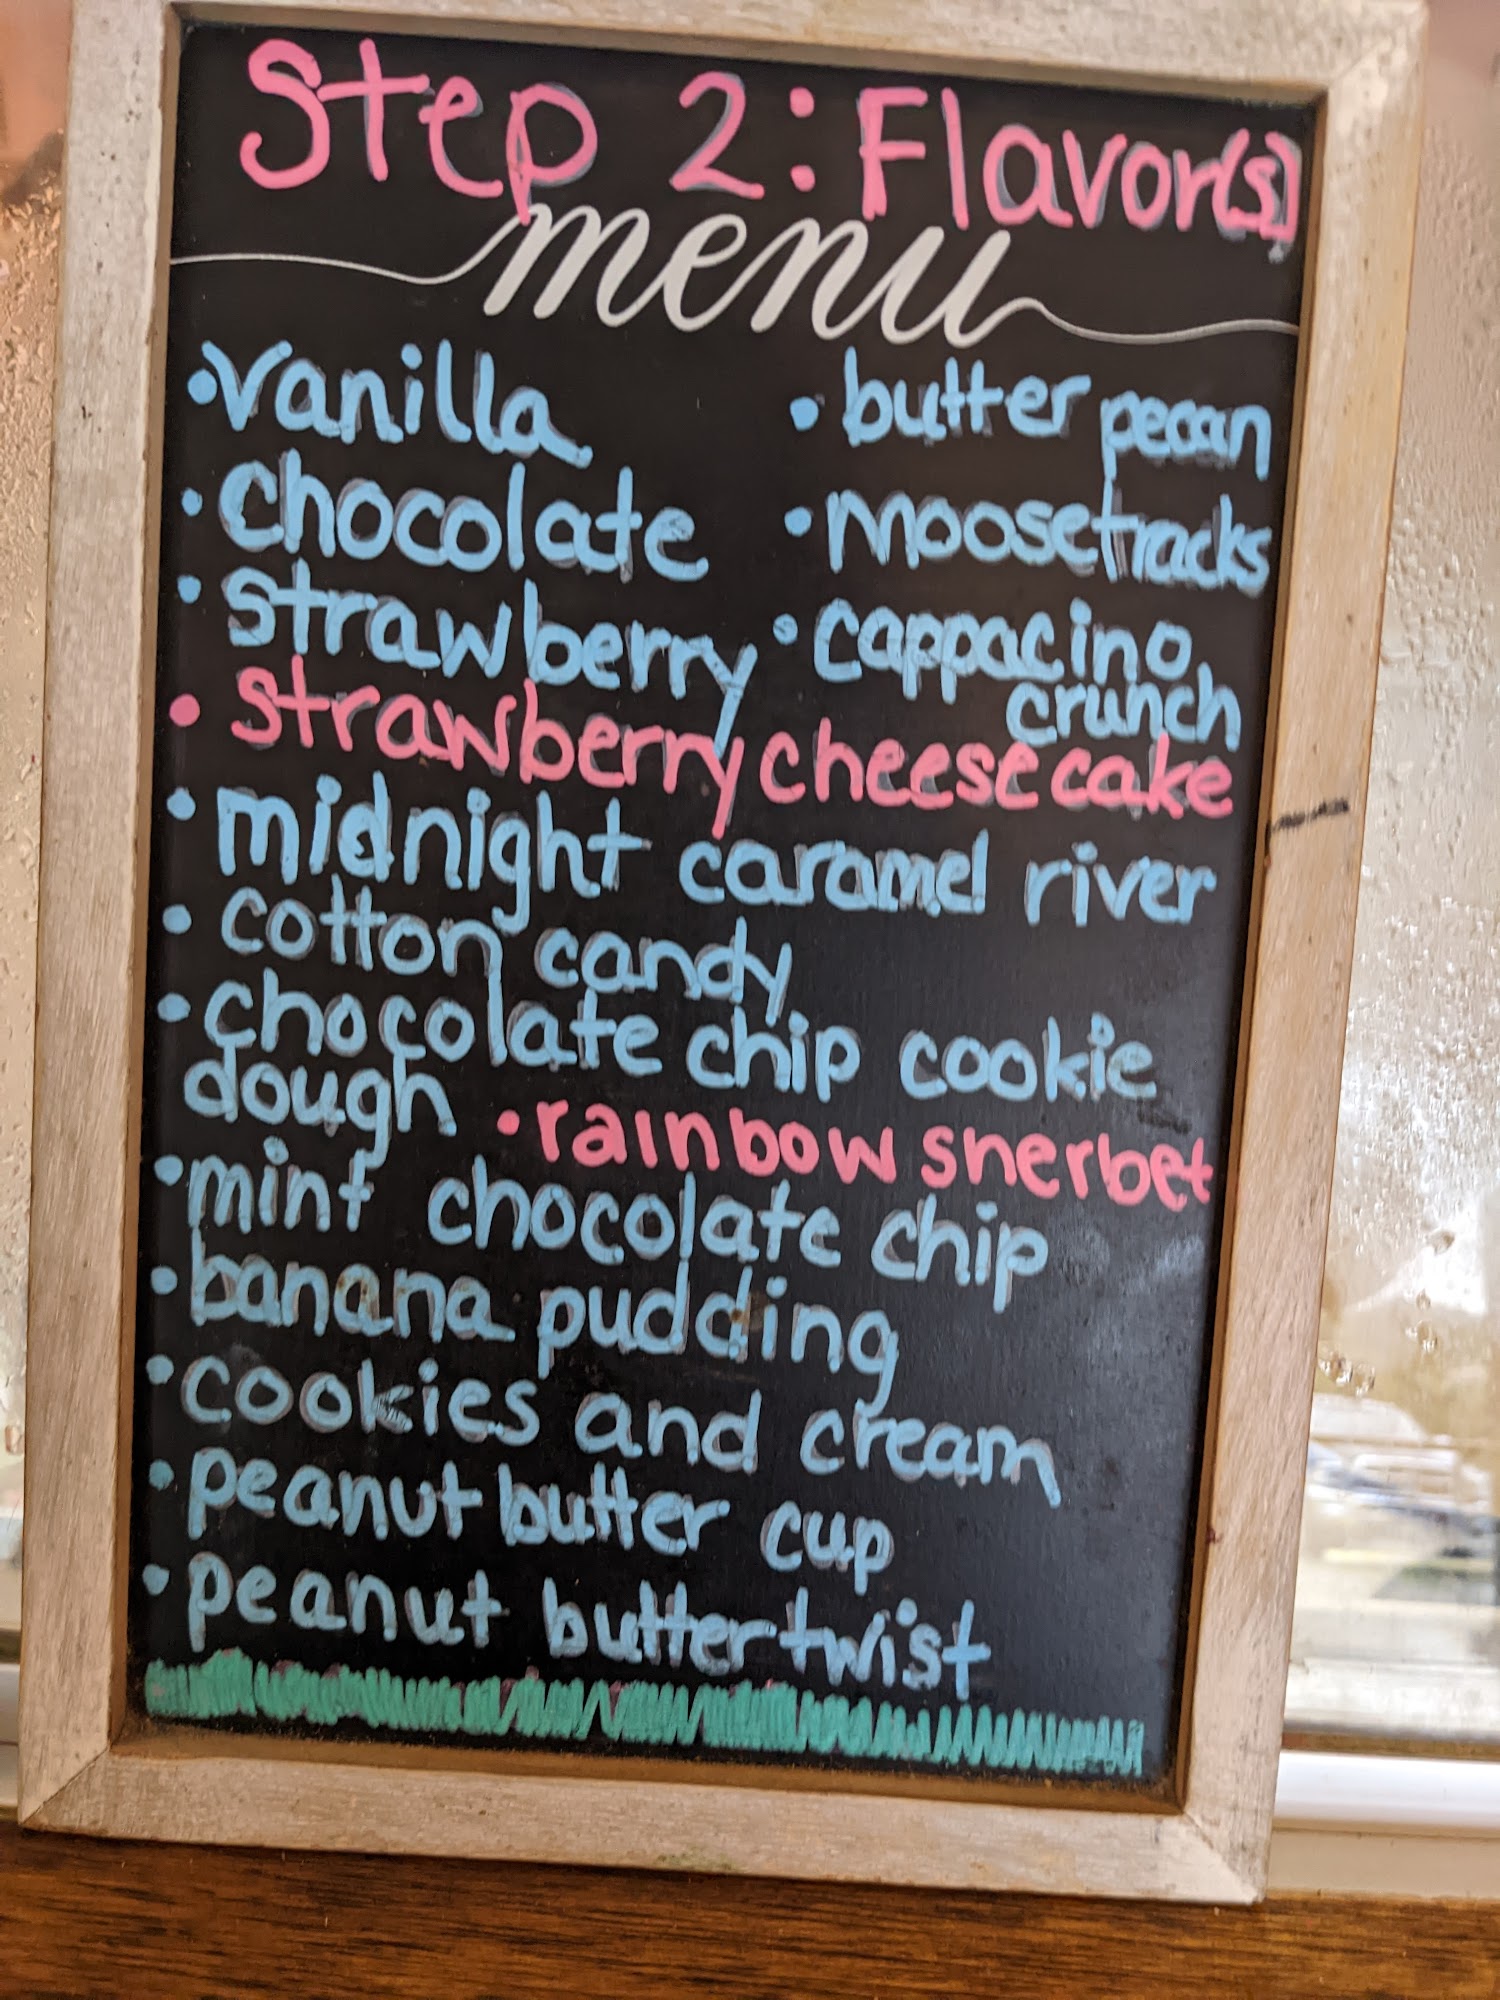 Step 2: Flavor(s)
menu
• vanilla
• butter pecan
• chocolate
• moosetracks
• strawberry
• cappacino
crunch
• strawberry cheesecake
• midnight caramel river
• cotton candy
• chocolate chip cookie
dough
• rainbow sherbet
• mint chocolate chip
• banana pudding
• cookies and cream
• peanut butter cup
• peanut butter twist